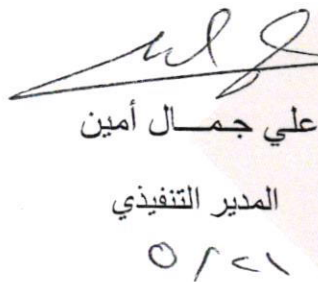 علي جمال أمين
المدير التنفيذي
٥/٢١